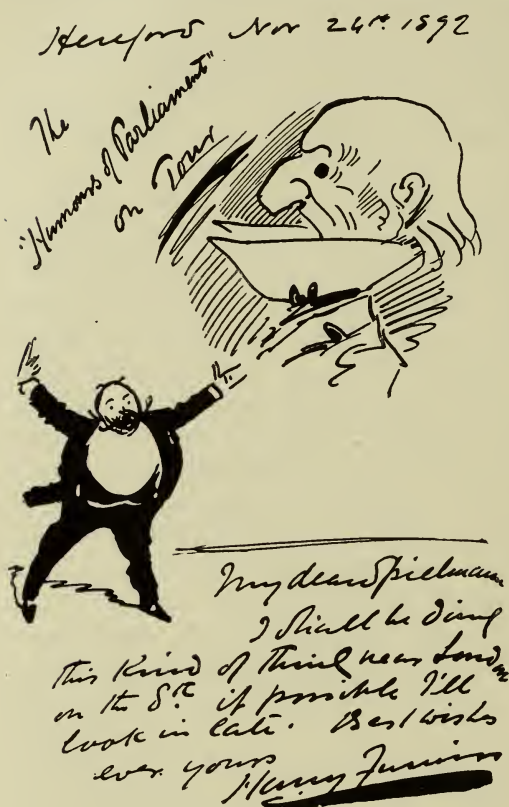 Hereford Nov 24th 1892
The
"Humours of Parliament"
on Tour
My dear Spielmann
I shall be doing
this kind of thing near London
on the 8th if possible I'll
look in late. Best wishes
ever yours
Harry Furniss